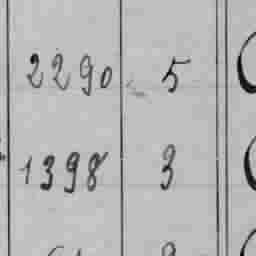 2290 5
1398 3